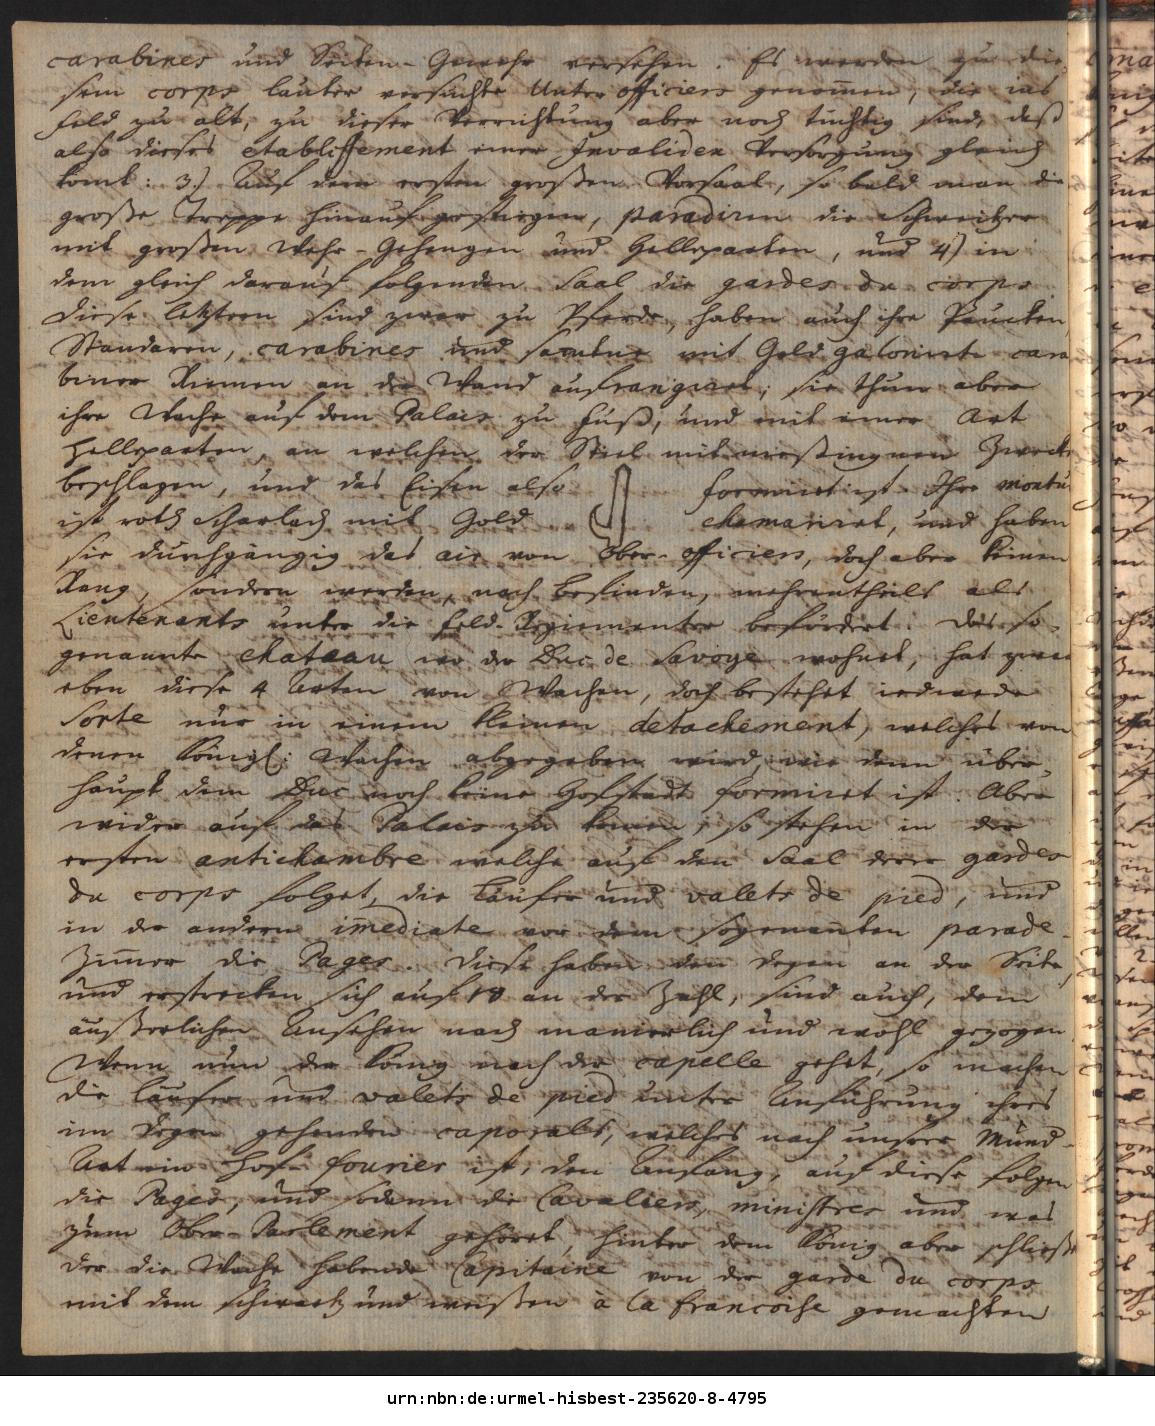 carabines und Seiten-Gewehr versehen. Es werden zu die
sem corps lauter versuchte Unter officiers genom̄en, die ins
feld zu alt, zu dieser Verrichtung aber noch tüchtig sind, daß
also dieses etablissement einer Invaliden Versorgung gleich
komt: 3.) Auf dem ersten großen Vorsaal, so bald man die
große Treppe hinauf gestiegen, paradiren die Schweitzer
mit großen Wehr-Gehengen und Helleparten, und 4) in
dem gleich darauf folgenden Saal die gardes du corps.
Diese letztern sind zwar zu Pferde, haben auch ihre Paucken,
Standaren, carabines und samtne mit Gold galonirte cara
biner Riemen an der Wand aufrangiret; sie thun aber
ihre Wache auf dem Palais zu fuß, und mit einer Art
Helleparten, an welchen der Stiel mit meßingnen Zwecken
beschlagen, und das Eisen also formiret ist. Ihre montur
ist roth Scharlach mit Gold chamariret, und haben
sie durchgängig das air von Ober-officiers, doch aber keinen
Rang, sondern werden, nach befinden, mehrentheils als
Lieutenants unter die feld-Regimenter befördert. Das so
genannte chateau wo der Duc de Savoye wohnet, hat zwar
eben diese 4 Arten von Wachen, doch bestehet iedwede
Sorte nur in einem kleinen detachement, welches von
denen Königl: Wachen abgegeben wird, wie denn über
haupt dem Duc noch keine Hofstadt formiret ist. Aber
wider auf das Palais zu komen, so stehen in der
ersten antichambre welche auf den Saal derer gardes
du corps folget, die Läufer und valets de pied, und
in der andern im̄ediate vor dem sogenan̄ten parade-
Zim̄er die Pages. Diese haben den Degen an der Seite,
und erstrecken sich auf 18 an der Zahl, sind auch, dem
äußerlichen Ansehen nach manierlich und wohl gezogen
Wenn nun der König nach der capelle gehet, so machen
die Läufer und valets de pied unter Anführung ihres
im Degen gehenden caporals, welches nach unsrer Mund-
Art ein Hof-fourier ist, den Anfang, auf diese folgen
die Pages, und sodann die Cavaliers, ministres und was
zum Ober-Parlement gehöret, hinter dem König aber schließet
der die Wache habende Capitaine von der garde du corps
mit dem schwartz und weißen à la francoise gemachten